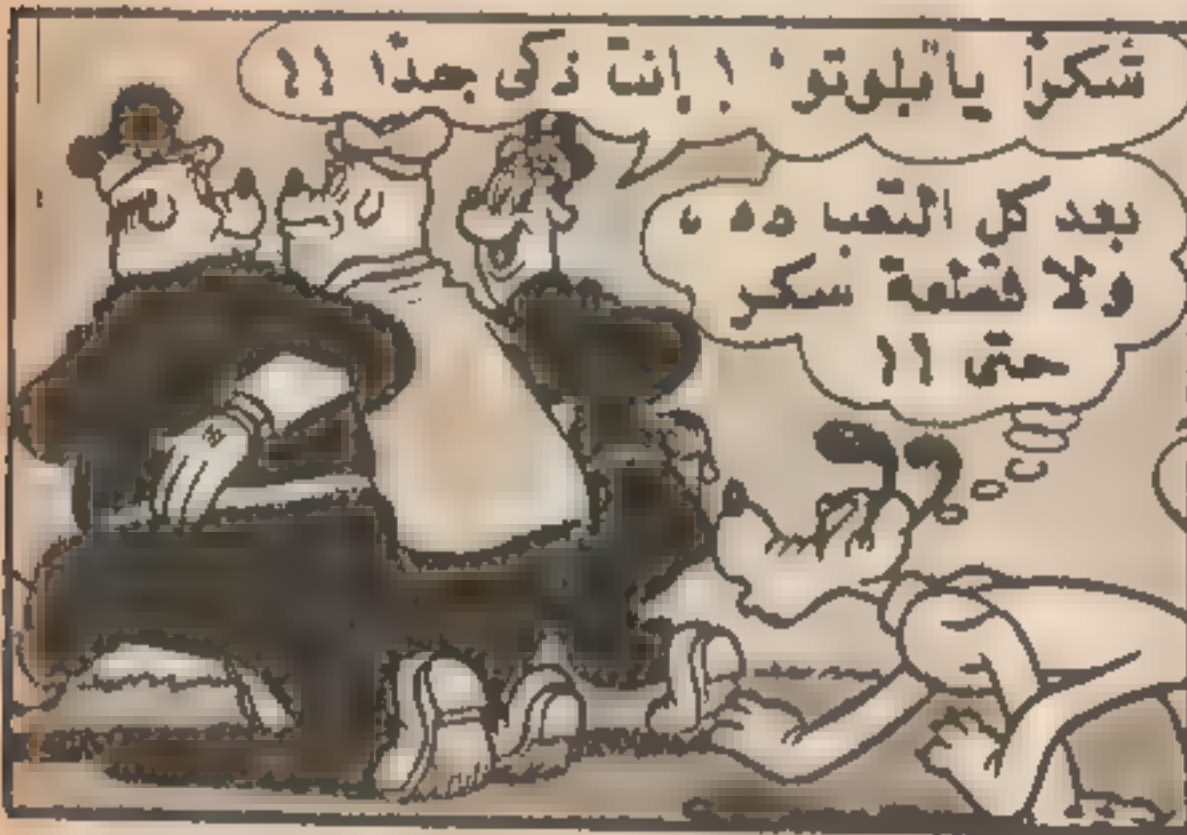 شكراً يا "بلوتو" ! إنت ذكى جداً !!
بعد كل التعب ده ،
ولا قطعة سكر
حتى !!